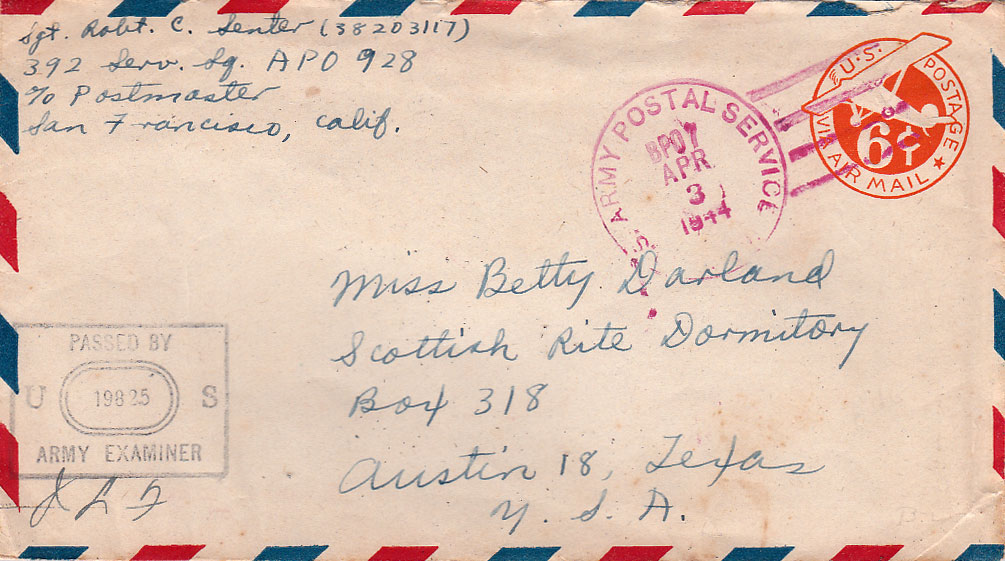 Sgt. Robt. C. Senter (38203117)
392 Serv. Sq. APO 928
℅ Postmaster
San Francisco, Calif.
U.S. POSTAGE
6¢
VIA AIR MAIL
U.S. ARMY POSTAL SERVICE
APR
3
1944
Miss Betty Darland
Scottish Rite Dormitory
Box 318
Austin 18, Texas
U. S. A.
PASSED BY
U 19825 S
ARMY EXAMINER